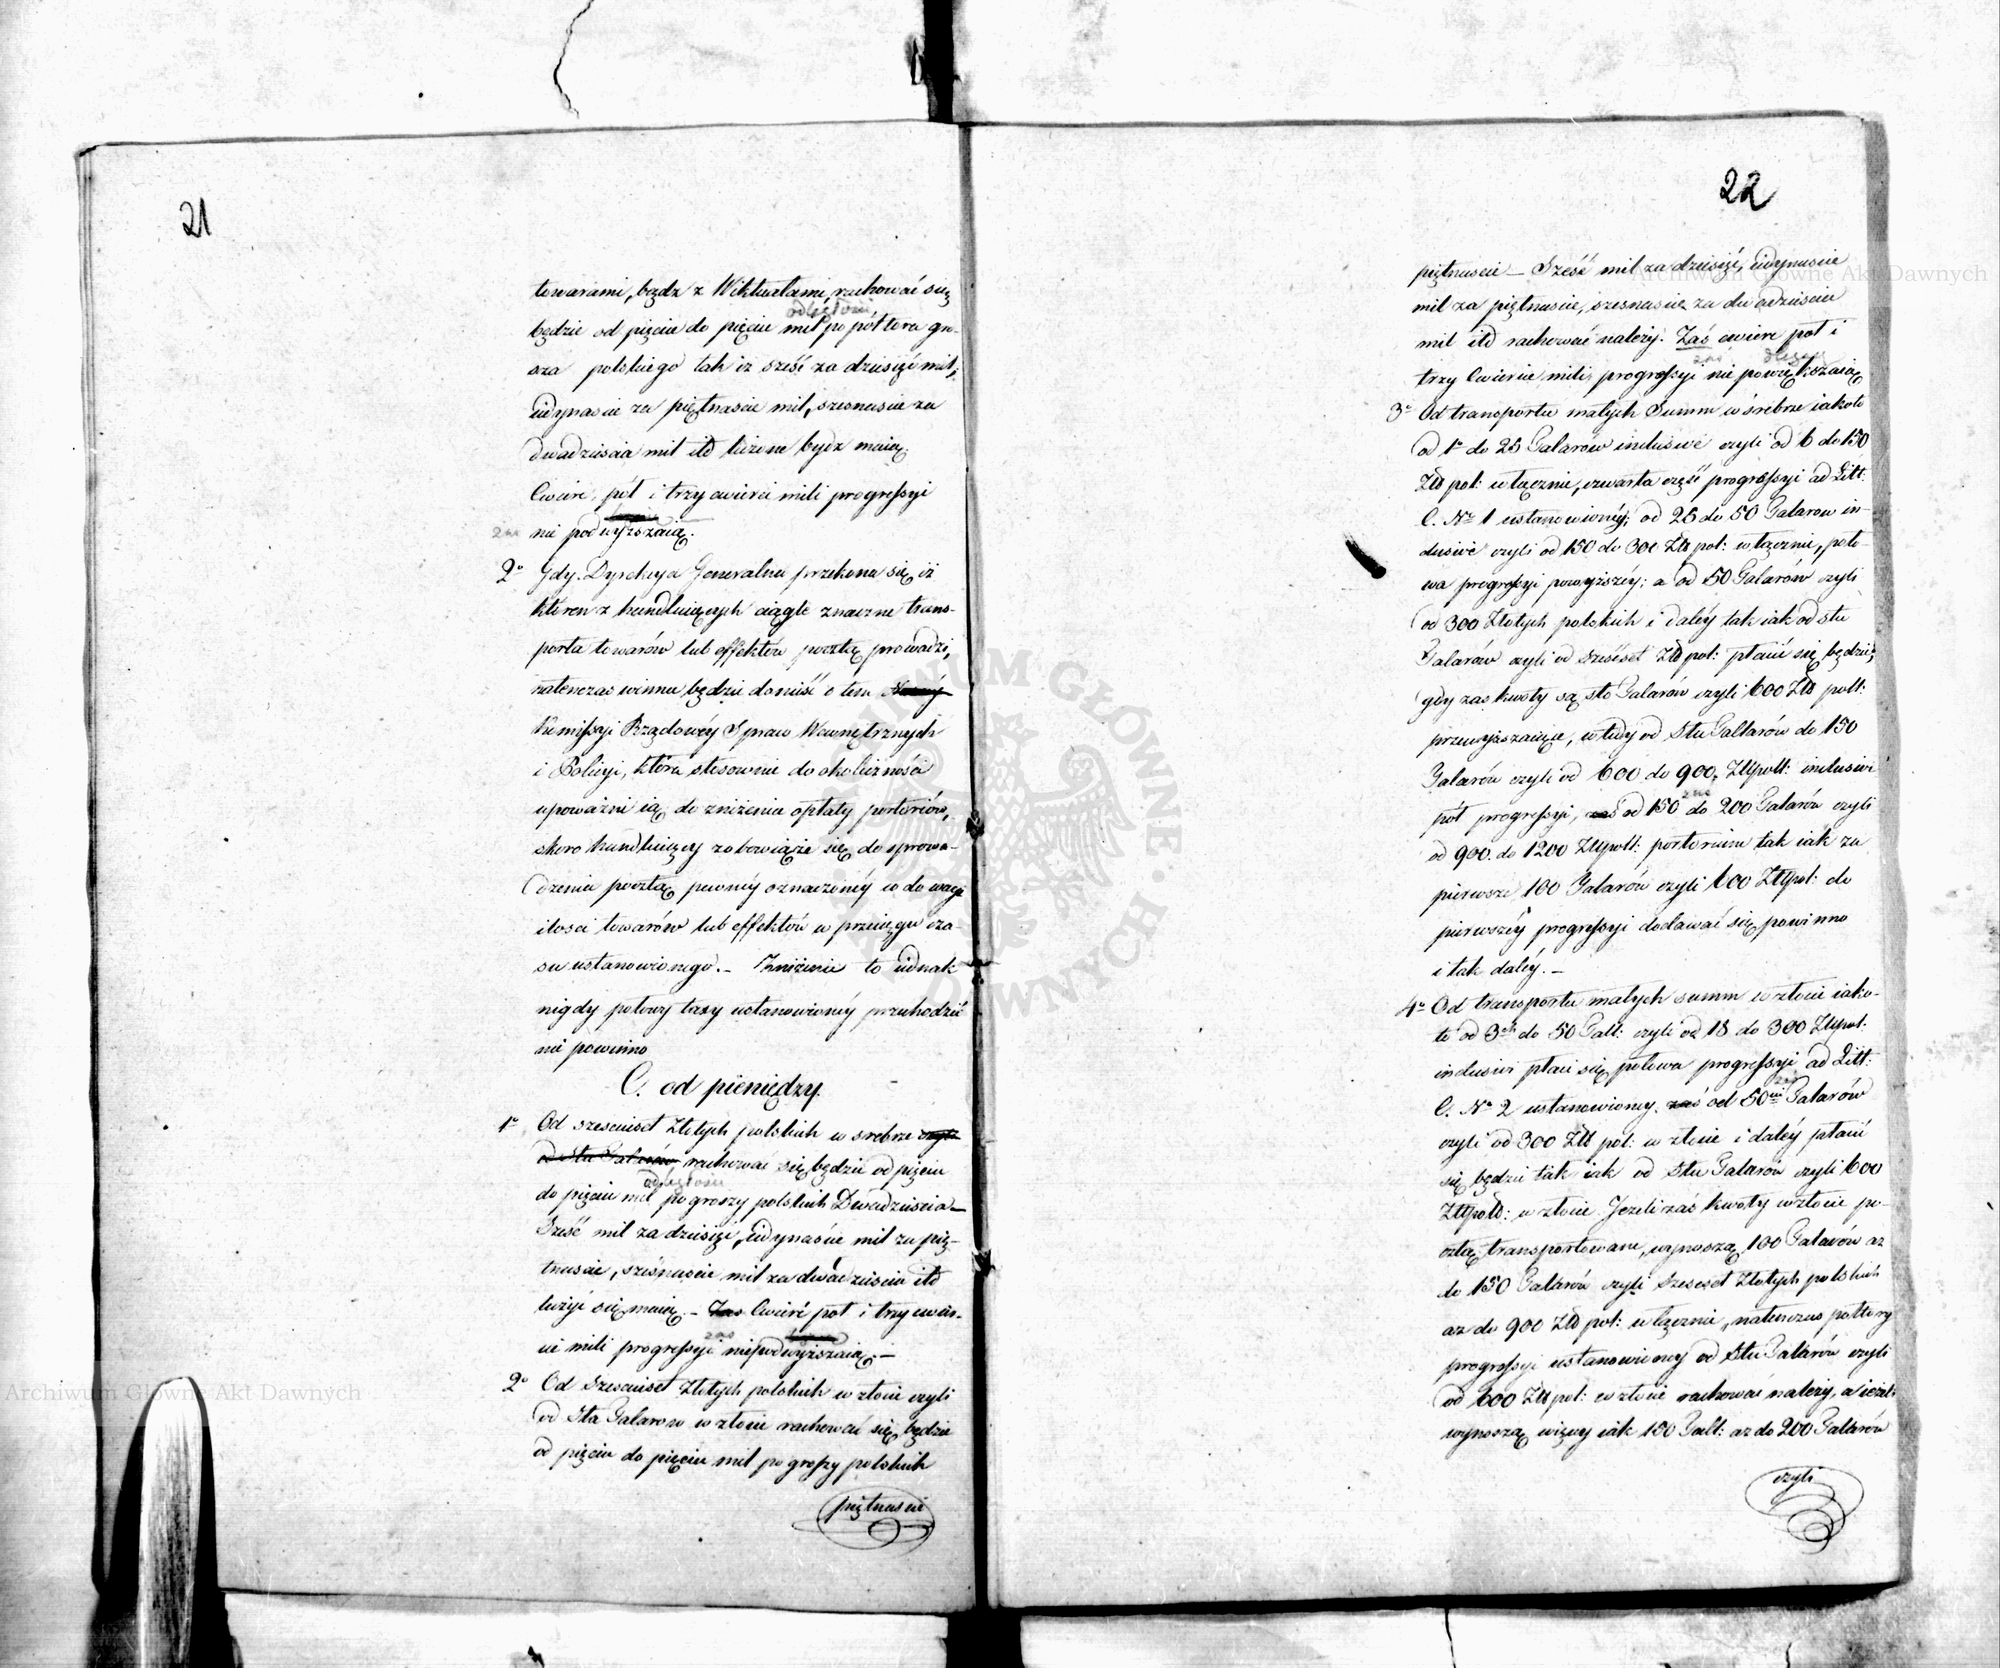 21
towarami, bądz z Wiktuałami, rachować się
odległości
będzie od pięciu do pięciu mil po półtora gro-
sza polskiego tak iż sześć za dziesięć mil,
iedynascie za piętnascie mil, szesnascie za
dwadziescia mil itd liczone bydz maią.
Cwierć, pół i trzy cwierci mili progressyi
zas nie podwyższaią.
2o Gdy Dyrekcya Generalna przekona się iż
któren z handluiących ciągle znaczne trans-
porta towarów lub effektów pocztą prowadzi,
natenczas winna będzie donieść o tem
Kommissyi Rządowéy Spraw Wewnętrznych
i Policyi, która stosownie do okoliczności
upoważni ią do zniżenia opłaty portoriów,
skoro handluiący zobowiąże się do sprowa-
dzenia pocztą pewnéy oznaczonéy co do wagi
ilosci towarów lub effektów w przeciągu cza-
su ustanowionego. – Zniżenie to iednak
nigdy połowy taxy ustanowionéy przechodzić
nie powinno
C. od pieniędzy.
1o Od szesciuset Złotych polskich w srebrze czyli
od Stu Talarów rachować się będzie od pięciu
odległości
do pięciu mil po groszy polskich Dwadziescia –
Sześć mil za dziesięć, iedynaście mil za pię-
tnascie, szésnascie mil za dwadziescia itd
liczyć się maią. – Zas Cwierć pół i trzy cwier-
zas
ci mili progressyi niepodwyższaią. –
2o Od Szesciuset Złotych polskich w złocie czyli
od Sta Talarow w złocie rachować się będzie
od pięciu do pięciu mil po groszy polskich
piętnascie
22
piętnascie – Sześć mil za dziesięć, iedynascie
mil za piętnascie, szesnascie za dwadziescia
mil itd rachować należy. Zaś cwierć pół i
zas
trzy Cwiercie mili, progressyi nie powiększaią
3o Od transportu małych Summ w śrebrze iakoto
od 1o do 25 Talarów inclusive czyli od 6 do 150
Złt pol: włącznie, czwarta część progressyi ad Litt:
C. No 1 ustanowionéy; od 25 do 50 Talarow in-
clusive czyli od 150 do 300 Złt pol: włącznie, poło-
wa progressyi powyższéy; a od 50 Talarów czyli
od 300 Złotych polskich i daléy tak iak od stu
Talarów czyli od sześéset Złt pol: płacić się będzie;
gdy zas kwoty są sto Talarów czyli 600 Złt poll:
przewyższaiące, wtedy od Stu Tallarów do 150
Talarów czyli od 600 do 900. Złtpoll: inclusive
zas
pół progressyi, zaś od 150 do 200 Talarów czyli
od 900. do 1200 Złtpoll: portorium tak iak za
pierwsze 100 Talarów czyli 600 Złtpol: do
pierwszéy progressyi dodawać się powinno
i tak daléy. –
4o Od transportu małych summ w złocie iako-
to od 3ch do 50 Tall: czyli od 18 do 300 Złtpol:
inclusive płaci się połowa progressyi ad Litt:
zas
C. No 2 ustanowioney. zaś od 50ciu Talarów
czyli od 300 Złt pol: w złocie i daléy płacić
się będzie tak iak od Stu Talarów czyli 600
Złtpoll: w złocie. Jeżeli zaś kwoty w złocie po-
cztą transportowane, wynoszą 100 Talarów aż
do 150 Talarów czyli Szescset Złotych polskich
az do 900 Złt pol: włącznie, natenczas półtory
progressyi ustanowioney od Stu Talarów czyli
od 600 Złt pol: w złocie rachować należy, a ieżeli
wynoszą więcey iak 150 Tall: az do 200 Tallarów
czyli
Archiwum Główne Akt Dawnych